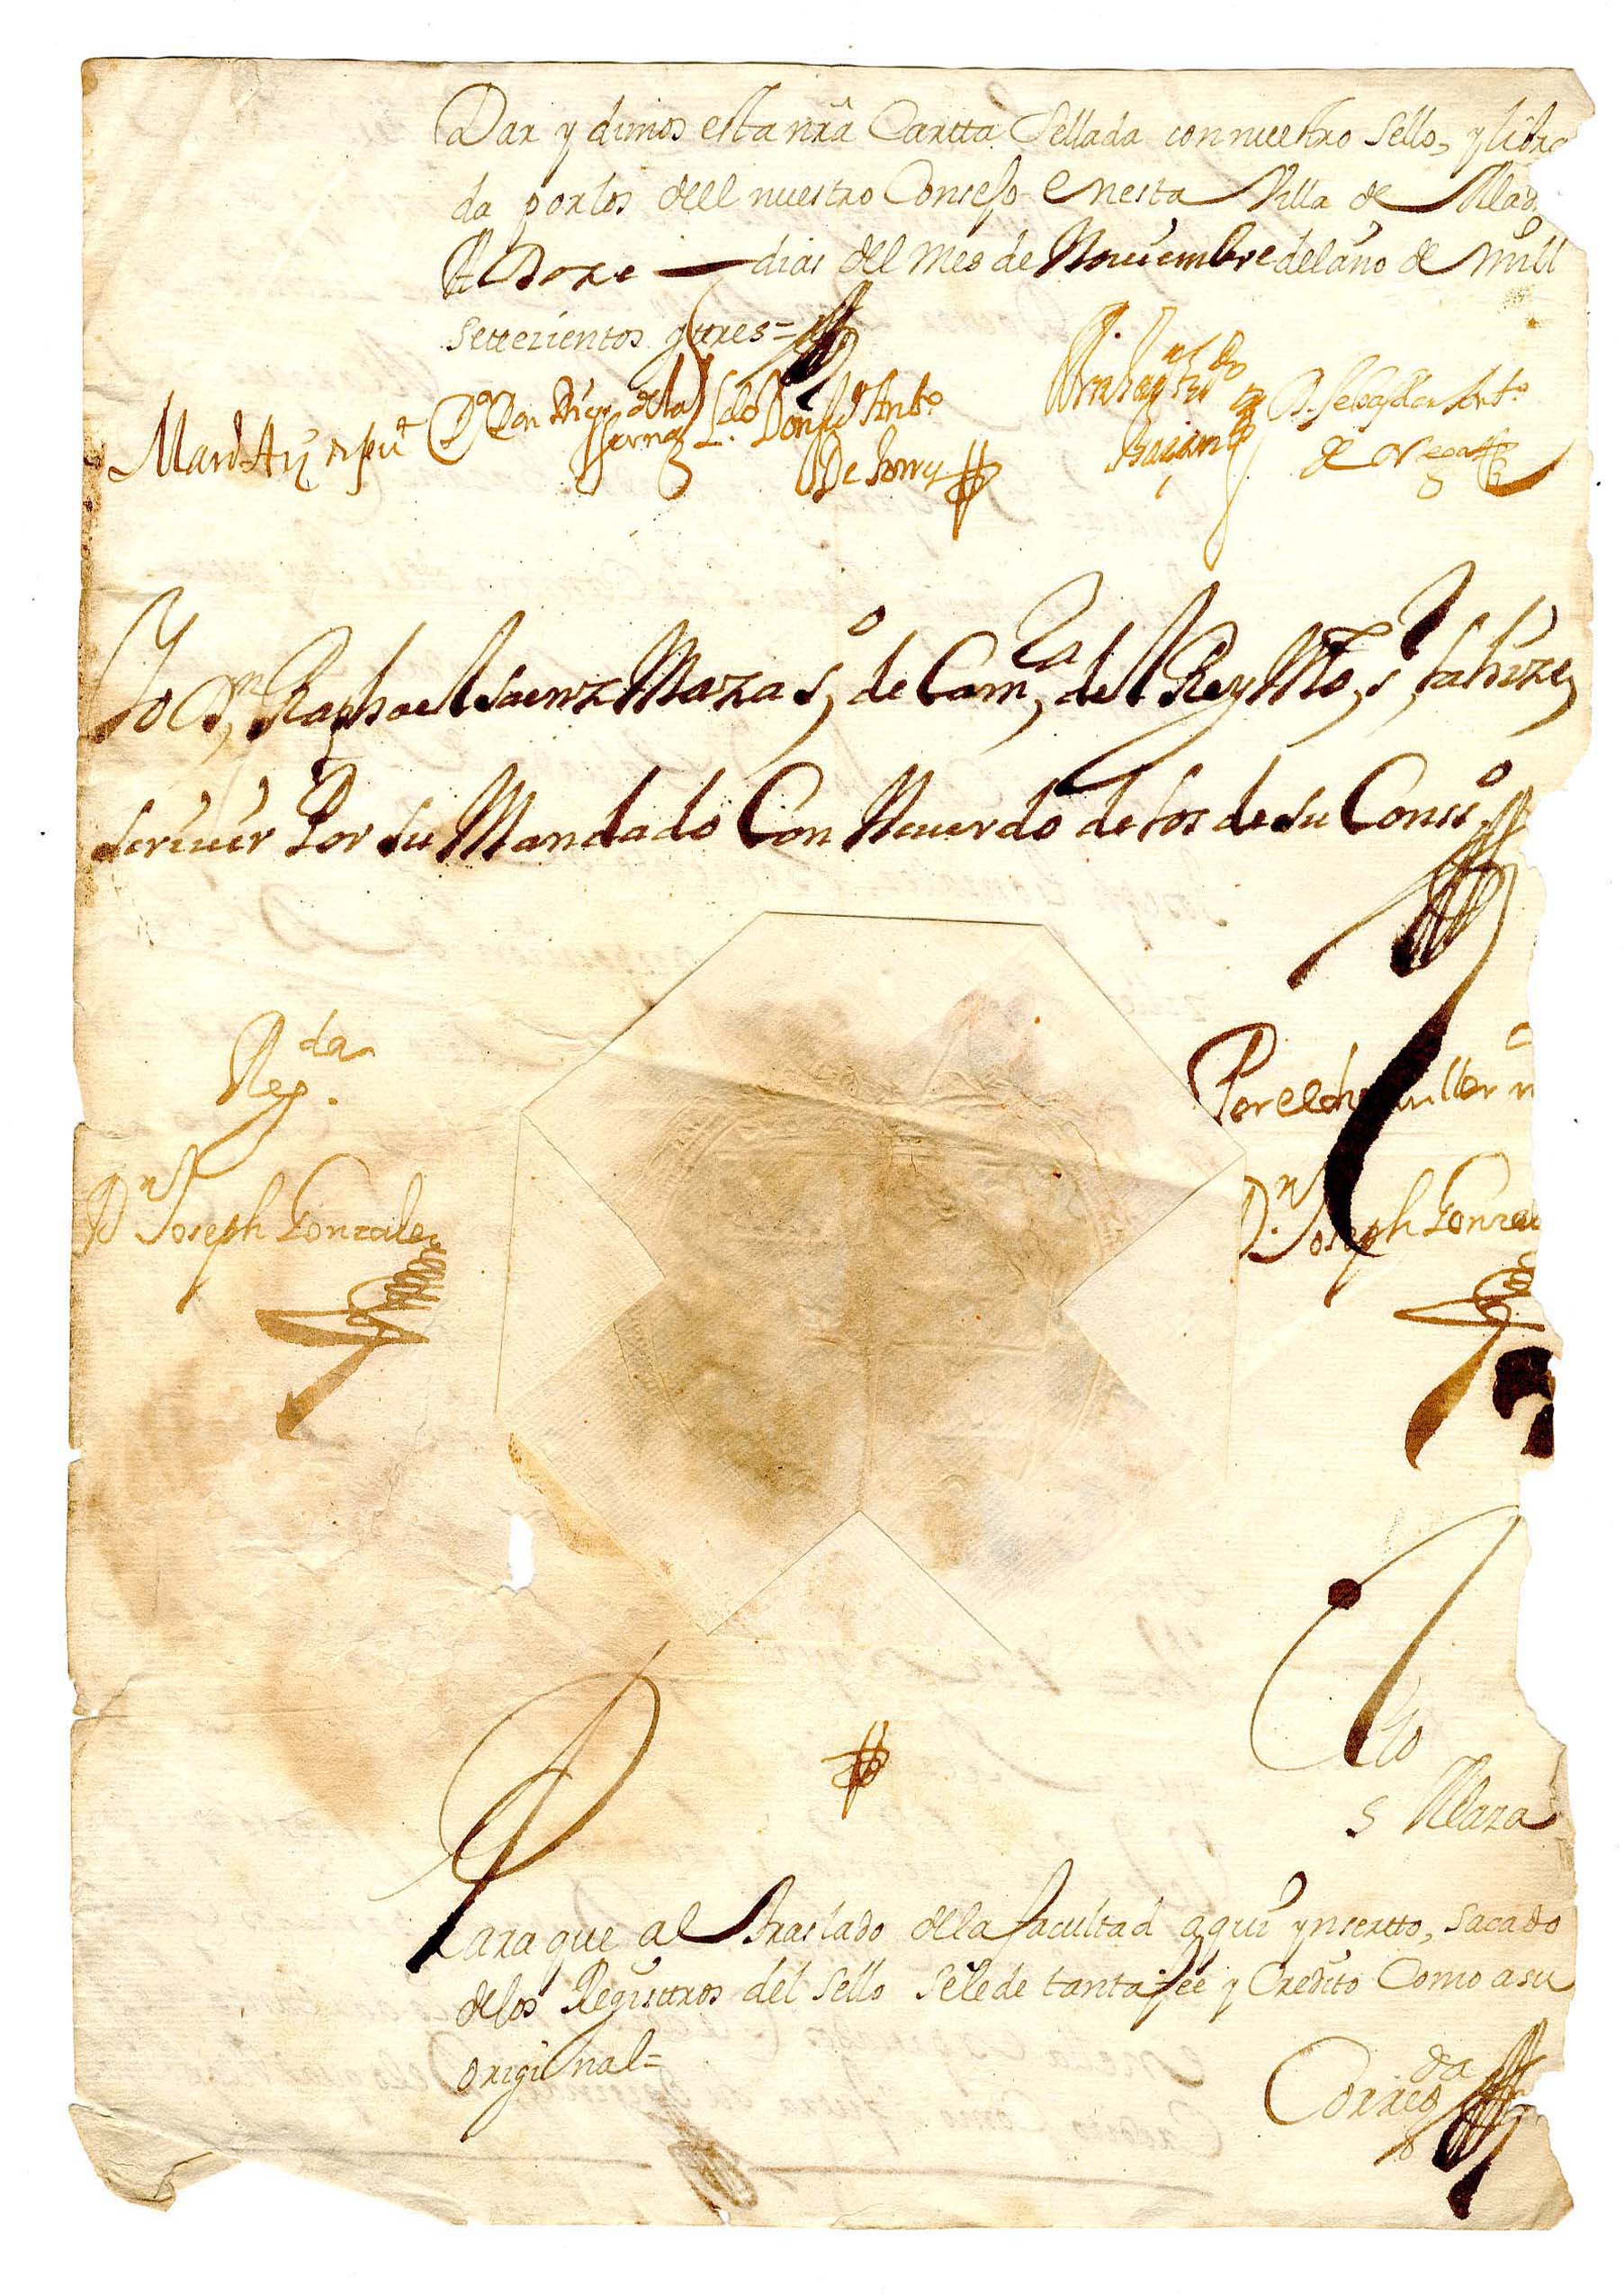 Dar y dimos esta nrâ Cartta Sellada con nuestro Sello, y libra
da por los dell nuestro Consejo En esta Villa de Mad
A Doze — dias del mes de Nouiembre del año de mill
setezientos y tres =
Dor Don Diego de la Serna
Ldo Don Ant.º
De
D. Sebastian Ant.º
de Ortega
Yo D.n Raphael Saenz Maza s.º de Cam.ra del Rey nro s.r la hize
Screuir Por su Mandado Con Acuerdo de los de su Conss.º
Reg.da
D.n Joseph Gonzalez
Por el chanciller m
D.n Joseph Gonzal
s Maza
Para que al traslado de la facultad aqui ynsertto, sacado
de los Registros del Sello se le de tanta fee y Credito Como a su
original =
Correg.da